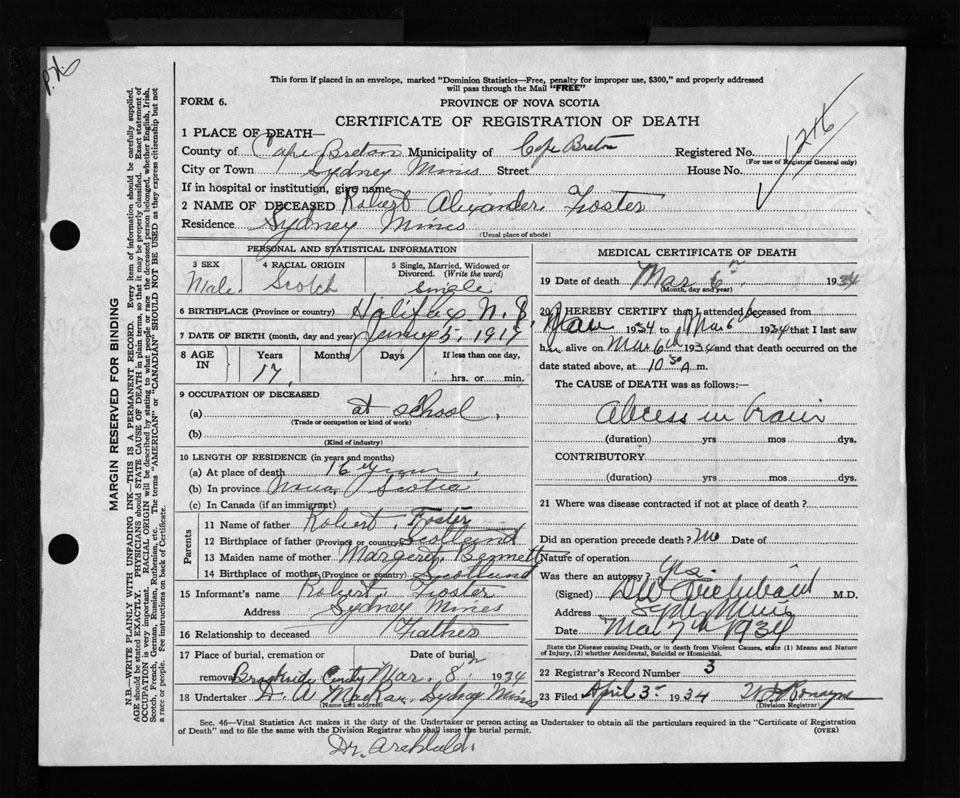 P.X.
This form if placed in an envelope, marked "Dominion Statistics—Free, penalty for improper use, $300," and properly addressed
will pass through the Mail "FREE"
FORM 6.
PROVINCE OF NOVA SCOTIA
CERTIFICATE OF REGISTRATION OF DEATH
1 PLACE OF DEATH—
County of Cape Breton Municipality of Cape Breton Registered No. 1246
(For use of Registrar General only)
City or Town Sydney Mines Street House No.
If in hospital or institution, give name
2 NAME OF DECEASED Robert Alexander Foster
Residence Sydney Mines
(Usual place of abode)
PERSONAL AND STATISTICAL INFORMATION
3 SEX Male
4 RACIAL ORIGIN Scotch
5 Single, Married, Widowed or Divorced. (Write the word) single
6 BIRTHPLACE (Province or country) Halifax N. S
7 DATE OF BIRTH (month, day and year) 5, 1917
8 AGE IN Years Months Days If less than one day,
17, hrs. or min.
9 OCCUPATION OF DECEASED
(a) at school.
(Trade or occupation or kind of work)
(b)
(Kind of industry)
10 LENGTH OF RESIDENCE (in years and months)
(a) At place of death 16 years
(b) In province Nova Scotia
(c) In Canada (if an immigrant)
Parents
11 Name of father Robert Foster
12 Birthplace of father (Province or country) Scotland
13 Maiden name of mother Margaret Bennett
14 Birthplace of mother (Province or country) Scotland
15 Informant's name Robert Foster
Address Sydney Mines
16 Relationship to deceased Father
17 Place of burial, cremation or removal Brookside Date of burial Mar. 8th 1934
18 Undertaker D. A. MacRae, Sydney Mines
(Name and address)
MEDICAL CERTIFICATE OF DEATH
19 Date of death Mar 6th 1934
(Month, day and year)
20 I HEREBY CERTIFY that I attended deceased from
1934 to Mar 6th 1934 that I last saw
him alive on Mar 6th 1934 and that death occurred on the
date stated above, at 10 30 A m.
The CAUSE of DEATH was as follows:—
Abcess in brain
(duration) yrs mos dys.
CONTRIBUTORY
(duration) yrs mos dys.
21 Where was disease contracted if not at place of death?
Did an operation precede death? no Date of
Nature of operation
Was there an autopsy? yes
(Signed) M.D.
Address Syd Mines
Date Mar 7th 1934
State the Disease causing Death, or in death from Violent Causes, state (1) Means and Nature of Injury, (2) whether Accidental, Suicidal or Homicidal.
22 Registrar's Record Number 3
23 Filed April 3rd 1934
(Division Registrar)
Sec. 46—Vital Statistics Act makes it the duty of the Undertaker or person acting as Undertaker to obtain all the particulars required in the "Certificate of Registration
of Death" and to file the same with the Division Registrar who shall issue the burial permit.
(OVER)
Dr. Archibald.
MARGIN RESERVED FOR BINDING
N.B.—WRITE PLAINLY WITH UNFADING INK—THIS IS A PERMANENT RECORD. Every item of information should be carefully supplied.
AGE should be stated EXACTLY. PHYSICIANS should STATE CAUSE OF DEATH in plain terms, so that it may be properly classified. Exact statement of
OCCUPATION is very important. RACIAL ORIGIN will be described by stating to what people or race the deceased person belonged, whether English, Irish,
Scotch, French, German, Russian, Ruthenian, etc. The terms "AMERICAN" or "CANADIAN" SHOULD NOT BE USED as they express citizenship but not
a race or people. See instructions on back of Certificate.